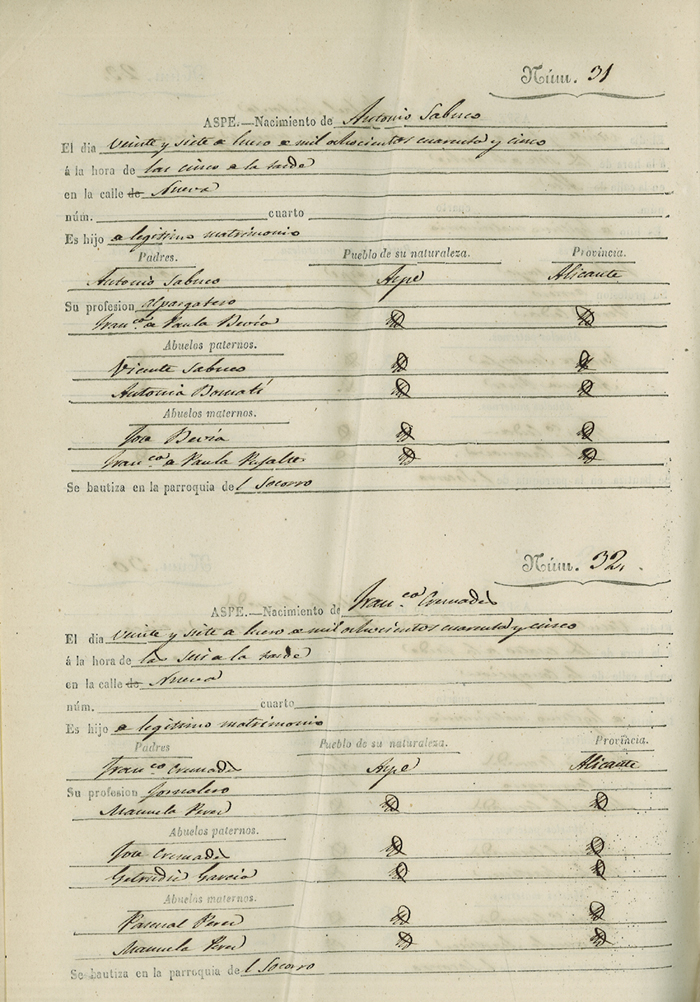 Núm. 31
ASPE.—Nacimiento de Antonio Sabuco
El dia veinte y siete de Enero de mil ochocientos cuarenta y cinco
á la hora de las cinco de la tarde
en la calle de Nueva
núm. cuarto
Es hijo de legitimo matrimonio
Padres. Pueblo de su naturaleza. Provincia.
Antonio Sabuco Aspe Alicante
Su profesion alpargatero
Fran.ca de Paula Bevía
Abuelos paternos.
Vicente Sabuco
Antonia Bomatí
Abuelos maternos.
Jose Bevía
Fran.ca de Paula
Se bautiza en la parroquia del Socorro
Núm. 32.
ASPE.—Nacimiento de Fran.co Cremades
El dia veinte y siete de Enero de mil ochocientos cuarenta y cinco
á la hora de las seis de la tarde
en la calle de Nueva
núm. cuarto
Es hijo de legitimo matrimonio
Padres Pueblo de su naturaleza. Provincia.
Fran.co Cremades Aspe Alicante
Su profesion Jornalero
Manuela Perez
Abuelos paternos.
Jose Cremades
Getrudis Garcia
Abuelos maternos.
Pascual Perez
Manuela Perez
Se bautiza en la parroquia del Socorro